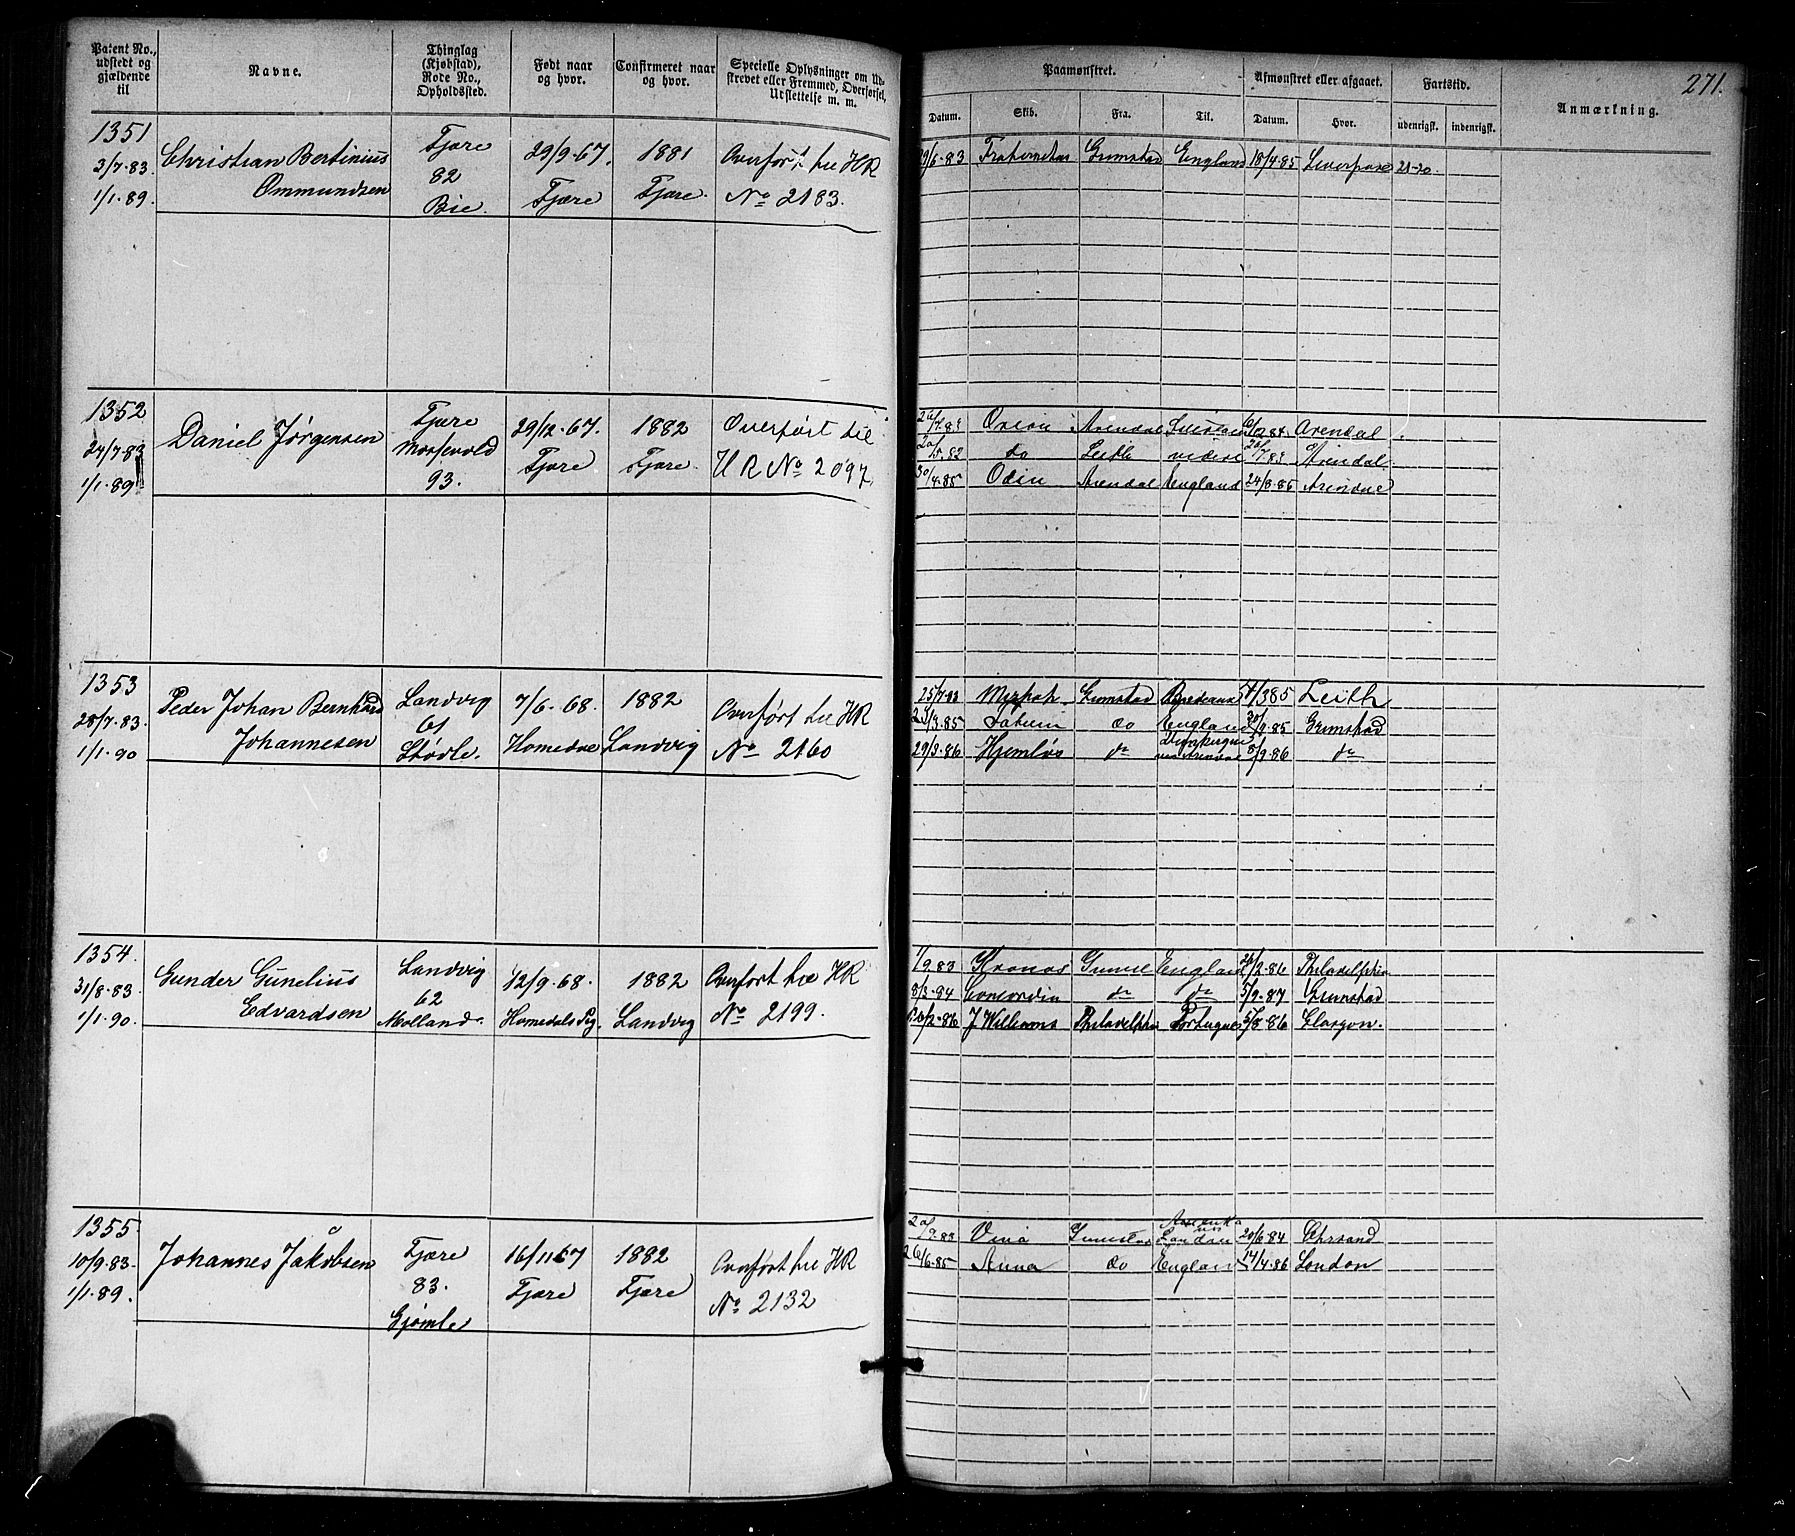 Patent No., udstedt og gjældende til
Navne.
Thinglag (Kjøbstad), Rode No., Opholdssted.
Født naar og hvor.
Confirmeret naar og hvor.
Specielle Oplysninger om Udskrevet eller Fremmed, Overførsel, Udslettelse m. m.
Paamønstret.
Afmønstret eller afgaaet.
Fartstid.
Anmærkning.
271.
Datum. Skib. Fra. Til. Datum. Hvor. udenrigst. indenrigst.
1351
3/7-83
1/1-89.
Christian Bertinius
Ommundsen
Fjære
82
Bie.
29/9-67.
Fjære
1881
Fjære.
Overført til HR
No 2183.
29/6-83 Fraternitas Grimstad England 18/4-85 Liverpool 21-20.
1352
24/7-83
1/1-89
Daniel Jørgensen
Fjære
93.
29/12-67.
Fjære
1882
Fjære.
Overført til
HR No 2097.
Orion Arendal Arendal
do Leith Arendal
30/4-85 Odin Arendal England 24/8-85 Arendal
1353
28/7-83.
1/1-90
Peder Johan Bernhard
Johannesen
Landvig
61
Stødle.
7/6-68.
Homedal
1882
Landvig
Overført til HR
No 2160
25/7-83 Mizpah Grimstad Bordeaux Leith
do England Grimstad
29/3-86 Hjemløs do 8/9-86 do
1354.
31/8-83.
1/1-90.
Gunder Gunelius
Edvardsen
Landvig
62
Molland.
12/9-68.
Homedals Sg.
1882
Landvig
Overført til HR
No 2199.
1/9.83 Kronos England Philadelphia
8/3-84 Concordia do do 5/9-87 Grimstad
J Williams Philadelphia 5/8-86 Glasgow.
1355.
10/9-83.
1/1-89.
Johannes Jakobsen
Fjære
83.
Gjømle
16/11 67
Fjære
1882
Fjære
Overført til HR
No 2132
London 20/6-84 Chrsand
26/6-85 Anna do England 14/4-86 London